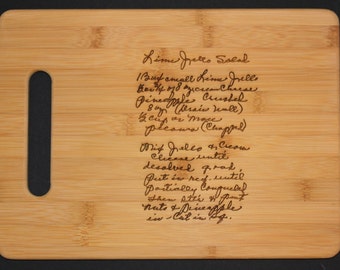 Lime Jello Salad
1 Box small Lime Jello
Box 4 or 8 oz cream cheese
Pineapple Crushed
8 oz (Drain well)
½ cup or more
pecans (Chopped)
Mix Jello & Cream
Cheese until
desolved good,
Put in ref. until
Partially Congealed
then stir & put
nuts & Pineapple
in Cut in Sq.